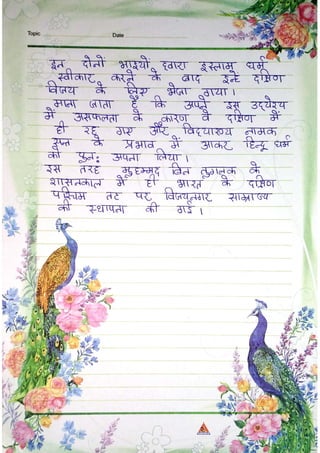 Topic Date
इन दोनो भाइयों द्वारा इस्लाम धर्म
स्वीकार करने के बाद इन्हे दक्षिण
विजय के लिए भेजा गया।
माना जाता है कि अपने इस उद्देश्य
में असफलता के कारण वे दक्षिण में
ही रह गए और विद्यारण्य नामक
सन्त के प्रभाव में आकर हिन्दू धर्म
को पुन: अपना लिया।
इस तरह मुहम्मद बिन तुगलक के
शासनकाल में ही भारत के दक्षिण
पश्चिम तट पर विजयनगर साम्राज्य
की स्थापना की गई।